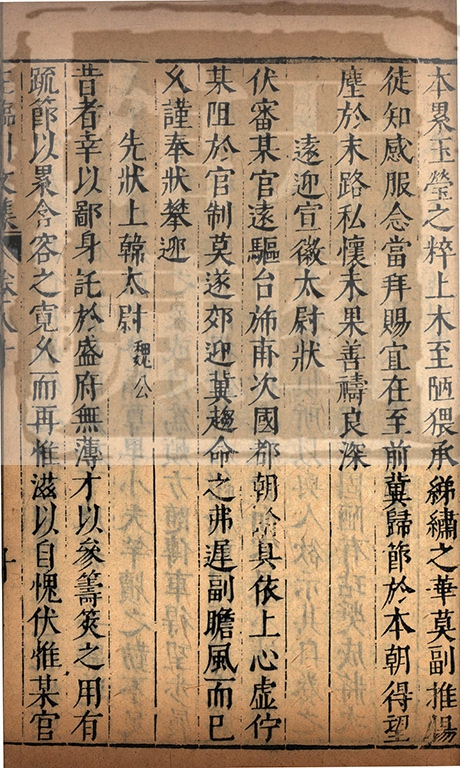 本累玉瑩之粹上木至陋猥承綈繡之華莫副推揚
徒知感服念當拜賜宜在至前冀歸節於本朝得望
塵於末路私懷未果善禱良深
遠迎宣徽太尉狀
伏審某官遠驅台斾甫次國都朝論具依上心虛佇
某阻於官制莫遂郊迎冀趨命之弗遲副瞻風而已
乆謹奉狀攀迎
先狀上韓太尉魏公
昔者幸以鄙身託於盛府無薄才以參籌筴之用有
疏節以累含容之寛乆而再惟滋以自愧伏惟某官
王臨川文集 卷八十